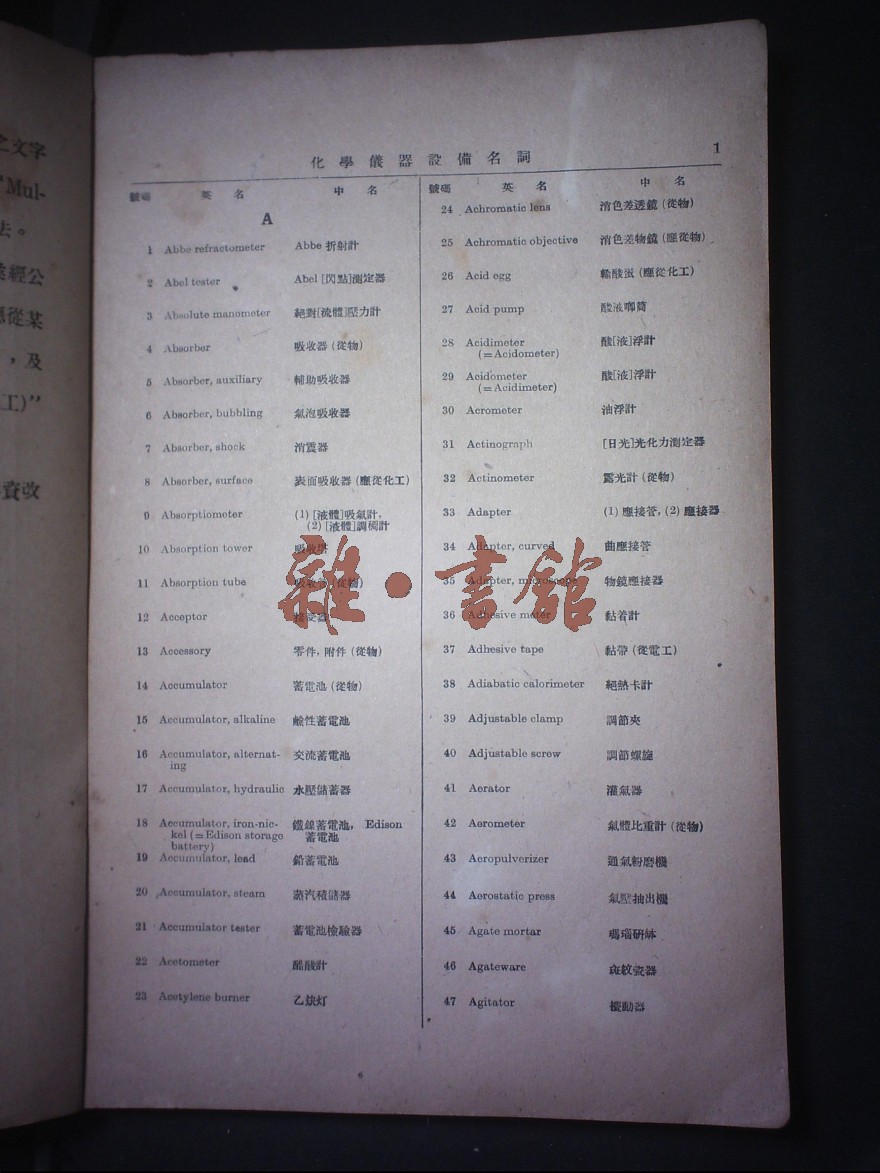 之文字
"Mul-
去。
業經公
應從某
，及
工)"
資改
化學儀器設備名詞 1
號碼 英名 中名
A
1 Abbe refractometer Abbe 折射計
2 Abel tester Abel [閃點]測定器
3 Absolute manometer 絕對[流體]壓力計
4 Absorber 吸收器 (從物)
5 Absorber, auxiliary 輔助吸收器
6 Absorber, bubbling 氣泡吸收器
7 Absorber, shock 消震器
8 Absorber, surface 表面吸收器 (應從化工)
9 Absorptiometer (1) [液體]吸氣計,
(2) [液體]調稠計
10 Absorption tower 吸收塔
11 Absorption tube 吸收管 (從物)
12 Acceptor 接受器
13 Accessory 零件, 附件 (從物)
14 Accumulator 蓄電池 (從物)
15 Accumulator, alkaline 鹼性蓄電池
16 Accumulator, alternat- 交流蓄電池
ing
17 Accumulator, hydraulic 水壓儲蓄器
18 Accumulator, iron-nic- 鐵鎳蓄電池, Edison
kel (=Edison storage 蓄電池
battery)
19 Accumulator, lead 鉛蓄電池
20 Accumulator, steam 蒸汽積儲器
21 Accumulator tester 蓄電池檢驗器
22 Acetometer 醋酸計
23 Acetylene burner 乙炔灯
號碼 英名 中名
24 Achromatic lens 消色差透鏡 (從物)
25 Achromatic objective 消色差物鏡 (應從物)
26 Acid egg 輸酸蛋 (應從化工)
27 Acid pump 酸液唧筒
28 Acidimeter 酸[液]浮計
(=Acidometer)
29 Acidometer 酸[液]浮計
(=Acidimeter)
30 Acrometer 油浮計
31 Actinograph [日光]光化力測定器
32 Actinometer 露光計 (從物)
33 Adapter (1) 應接管, (2) 應接器
34 Adapter, curved 曲應接管
35 Adapter, microscope 物鏡應接器
36 Adhesive meter 黏着計
37 Adhesive tape 黏帶 (從電工)
38 Adiabatic calorimeter 絕熱卡計
39 Adjustable clamp 調節夾
40 Adjustable screw 調節螺旋
41 Aerator 灌氣器
42 Aerometer 氣體比重計 (從物)
43 Aeropulverizer 通氣粉磨機
44 Aerostatic press 氣壓抽出機
45 Agate mortar 瑪瑙研缽
46 Agateware 斑紋瓷器
47 Agitator 攪動器
雜·書館
6